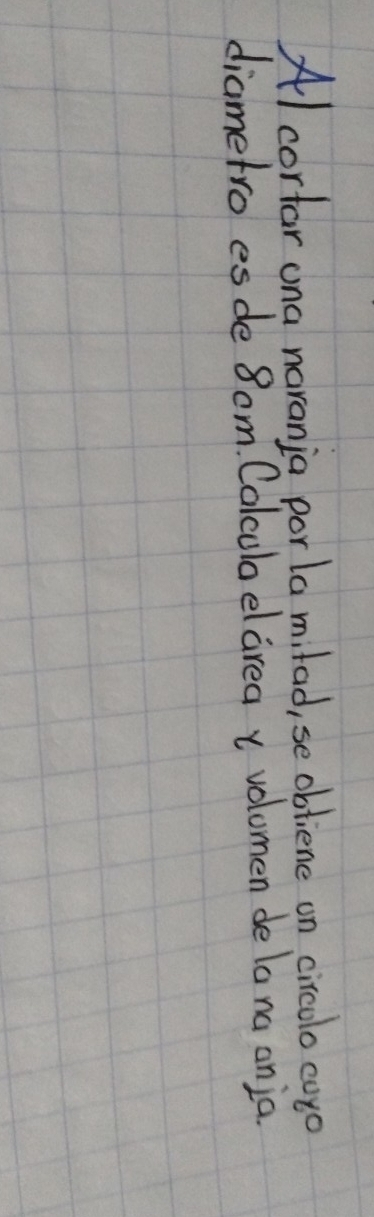 Al cortar una naranja por la mitad, se obtiene un circulo cuyo
diametro es de 8cm. Calcula el área y volumen de la na anja.